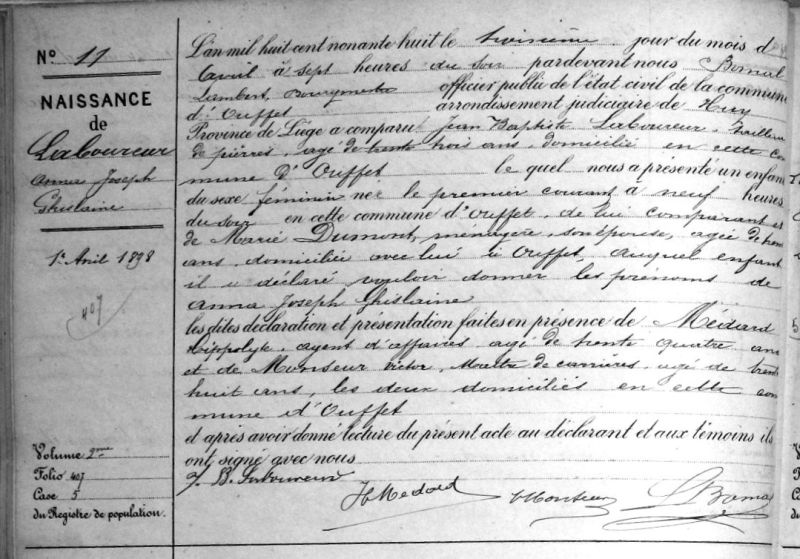 N.o 11
NAISSANCE
de
Laboureur
Anna Joseph
Ghislaine
1r Avril 1898
407
Volume 2me
Folio 407
Case 5
du Registre de population.
L'an mil huit cent nonante huit le troisième jour du mois d
Avril à sept heures du soir pardevant nous Bomal
Lambert, Bourgmestre officier public de l'état civil de la commune
d'Ouffet arrondissement judiciaire de Huy
Province de Liége a comparu Jean Baptiste Laboureur, tailleur
de pierres, agé de trente trois ans, domicilié en cette com
mune d'Ouffet le quel nous a présenté un enfant
du sexe féminin née le premier courant à neuf heures
du soir en cette commune d'Ouffet, de lui comparant et
de Marie Dumont, ménagère, son épouse, agée de
ans, domiciliée avec lui à Ouffet, auquel enfant
il a déclaré vouloir donner les prénoms de
Anna Joseph Ghislaine
les dites déclaration et présentation faites en présence de Médard
Hippolyte, agent d'affaires agé de trente quatre ans
et de Monseur Victor, Maître de carrières, agé de trente
huit ans, les deux domiciliés en cette com
mune d'Ouffet
et après avoir donné lecture du présent acte au déclarant et aux témoins ils
ont signé avec nous
J. B. Laboureur
H Medard
V Monseur
L Bomal